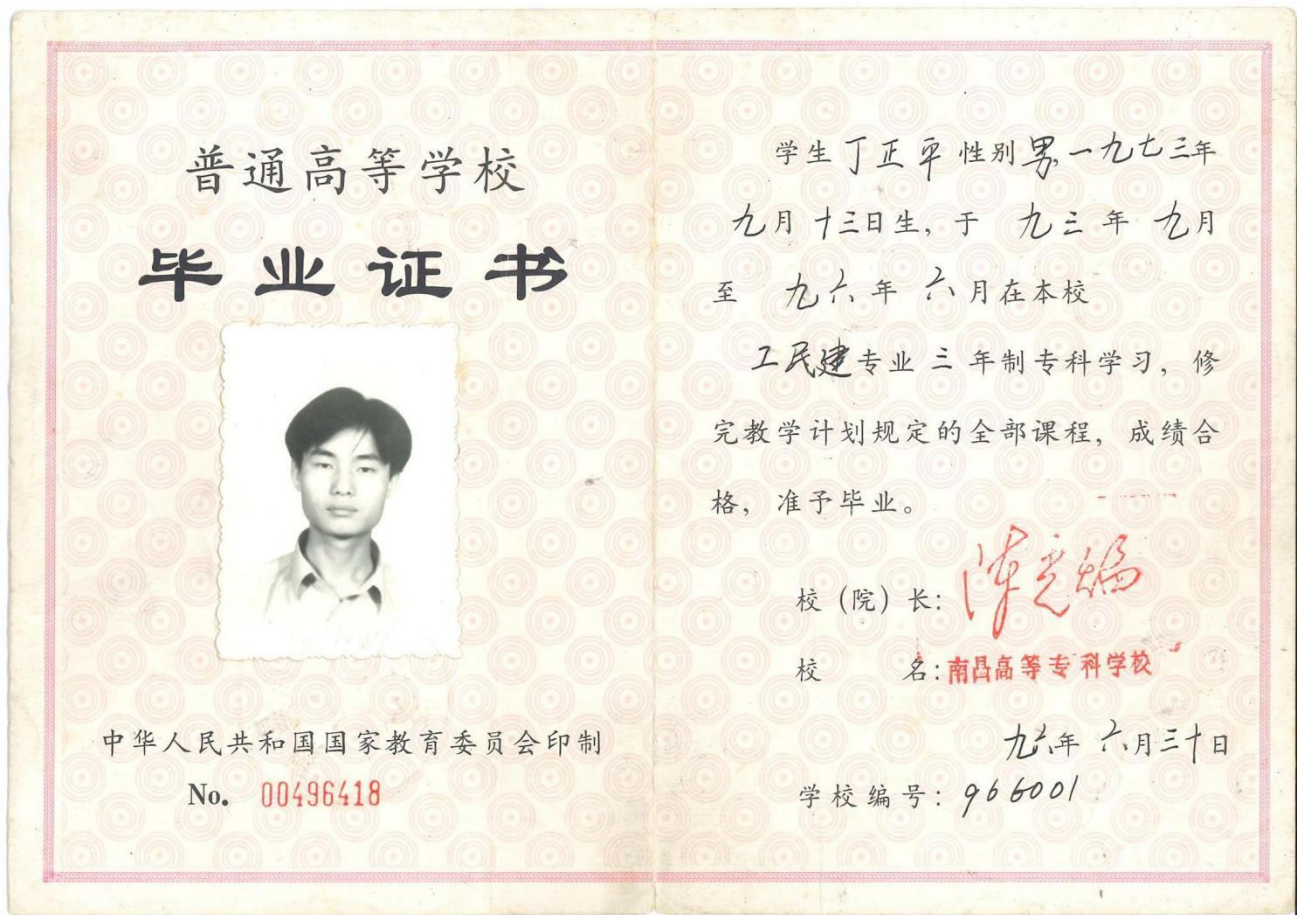 普通高等学校
毕业证书
中华人民共和国国家教育委员会印制
No. 00496418
学生丁正平性别男,一九七三年
九月十三日生,于 九三年九月
至 九六年六月在本校
工民建专业 三 年制专科学习,修
完教学计划规定的全部课程,成绩合
格,准予毕业。
校(院)长:
校 名:南昌高等专科学校
九六年六月三十日
学校编号:966001